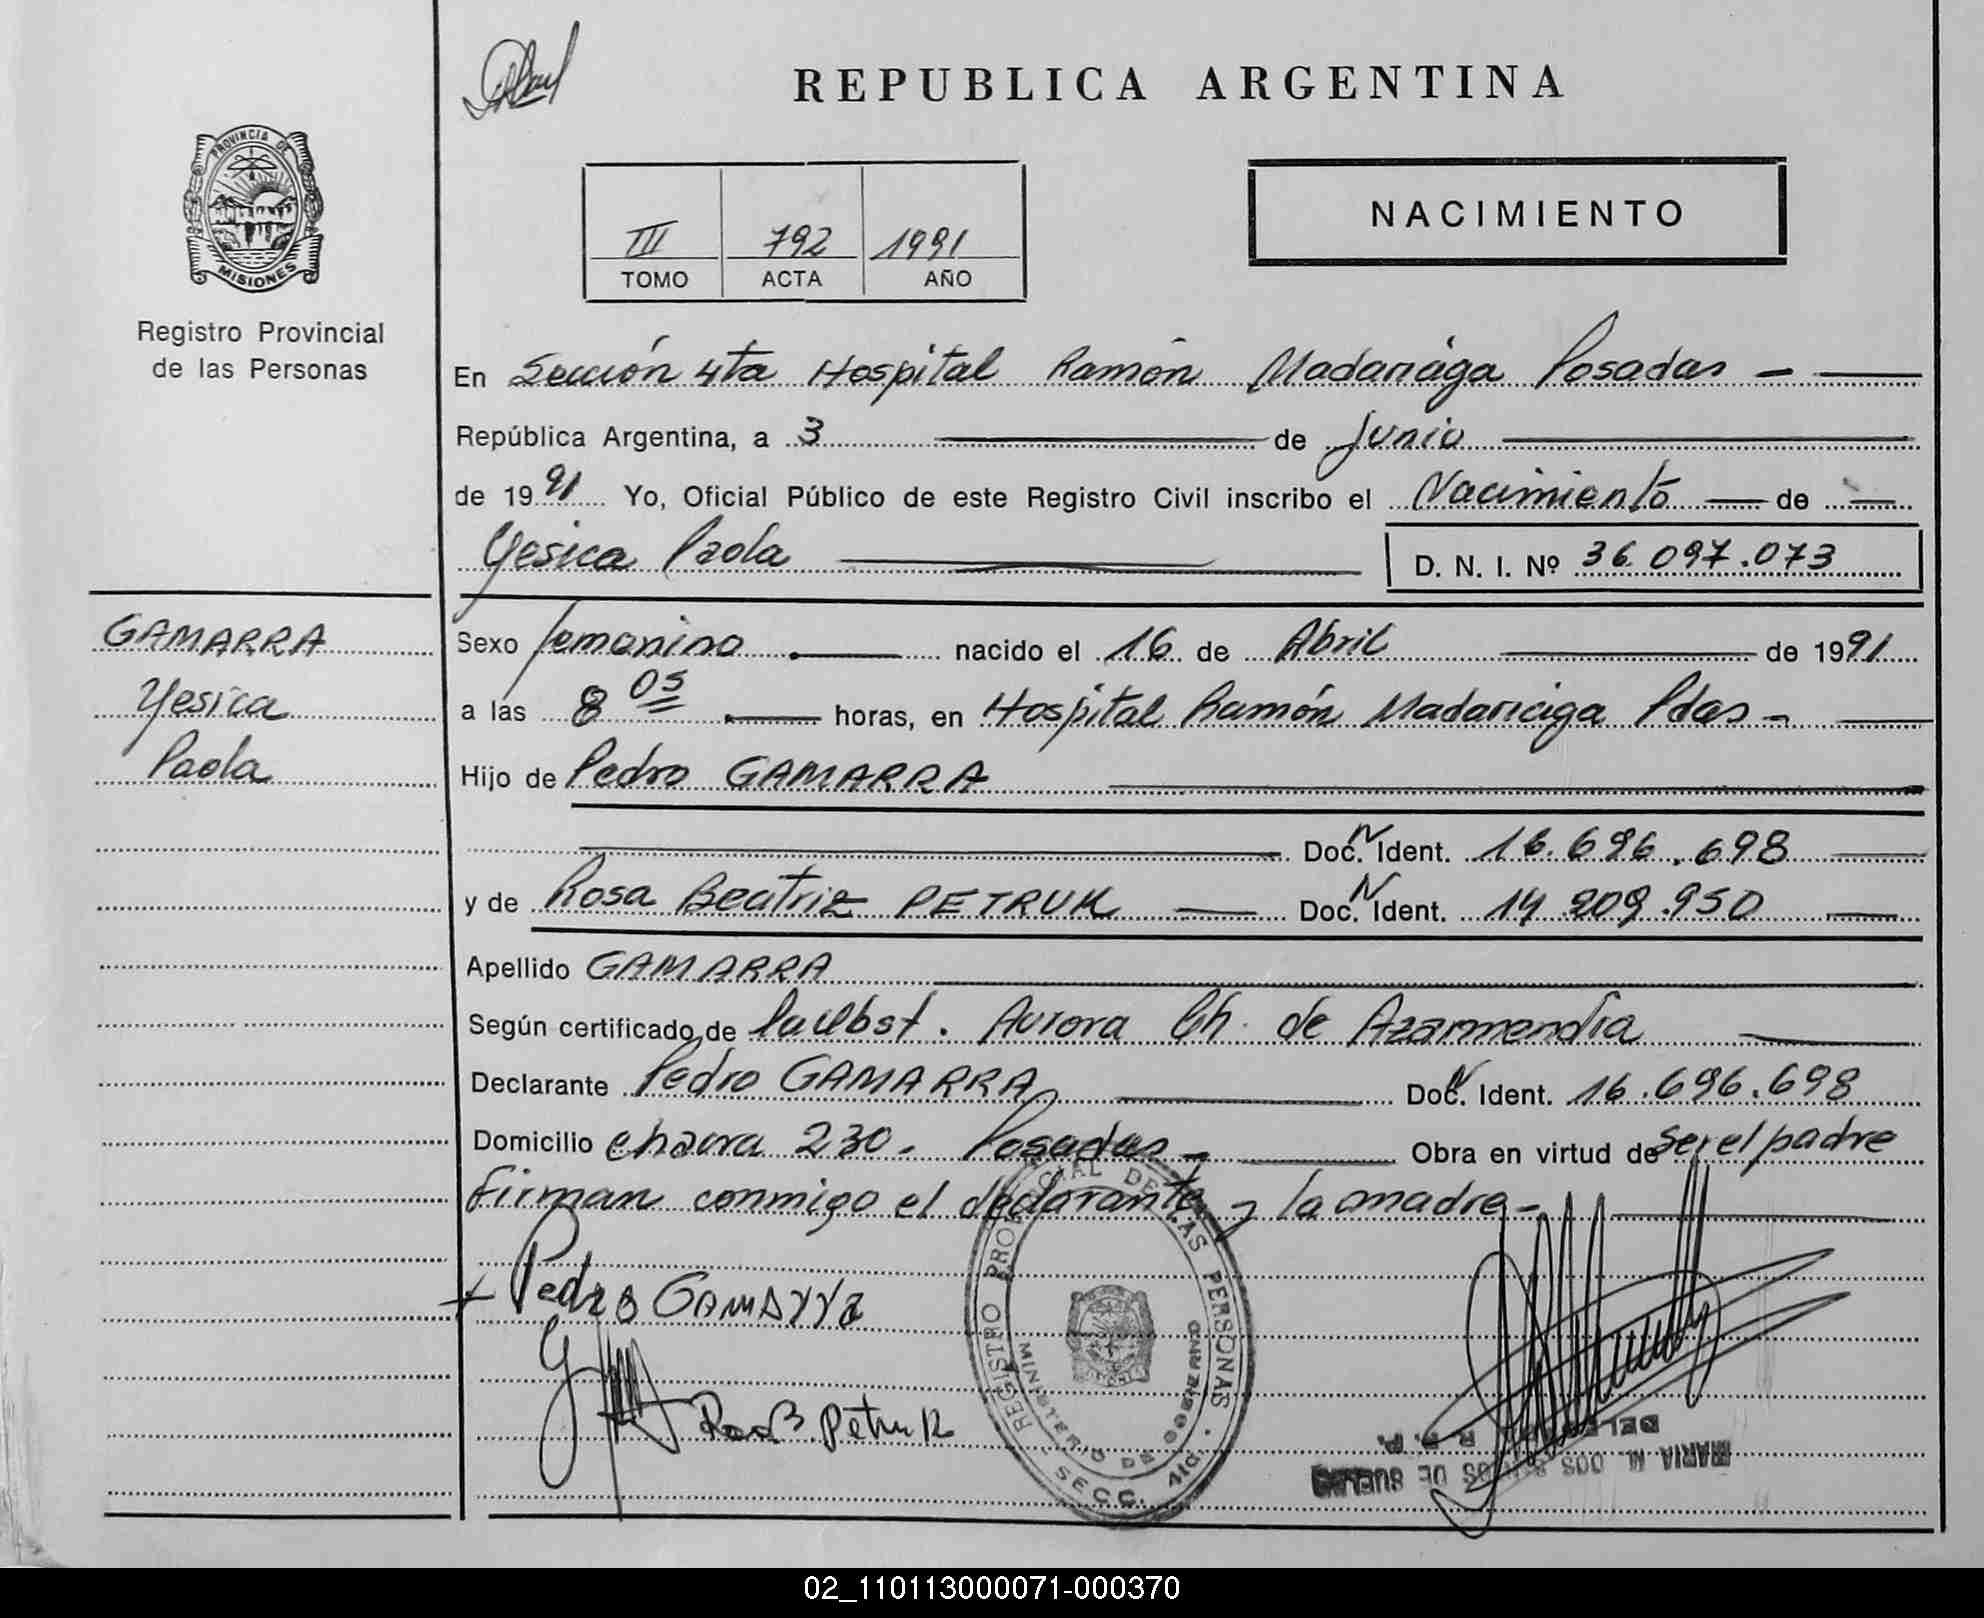 REPUBLICA ARGENTINA
PROVINCIA DE
MISIONES
Registro Provincial
de las Personas
III 792 1991
TOMO ACTA AÑO
NACIMIENTO
En Sección 4ta Hospital Ramón Madariaga Posadas -
República Argentina, a 3 de junio
de 1991 Yo, Oficial Público de este Registro Civil inscribo el Nacimiento de
Yesica Paola D. N. I. Nº 36.097.073
GAMARRA
Yesica
Paola
Sexo femenino nacido el 16 de Abril de 1991
a las 8 05 horas, en Hospital Ramón Madariaga Pdas -
Hijo de Pedro GAMARRA
Doc. N Ident. 16.696.698
y de Rosa Beatriz PETRUK Doc. N Ident. 14.209.950
Apellido GAMARRA
Según certificado de Aurora Ch. de Azarmendia
Declarante Pedro GAMARRA Doc. N Ident. 16.696.698
Domicilio 230. Posadas - Obra en virtud de ser el padre
Firman conmigo el declarante y la madre -
Pedro GAMArra
Petruk
REGISTRO PROVINCIAL DE LAS PERSONAS
MINISTERIO DE GOBIERNO
SECC. 4ta.
MARIA M. DOS DE
02_110113000071-000370